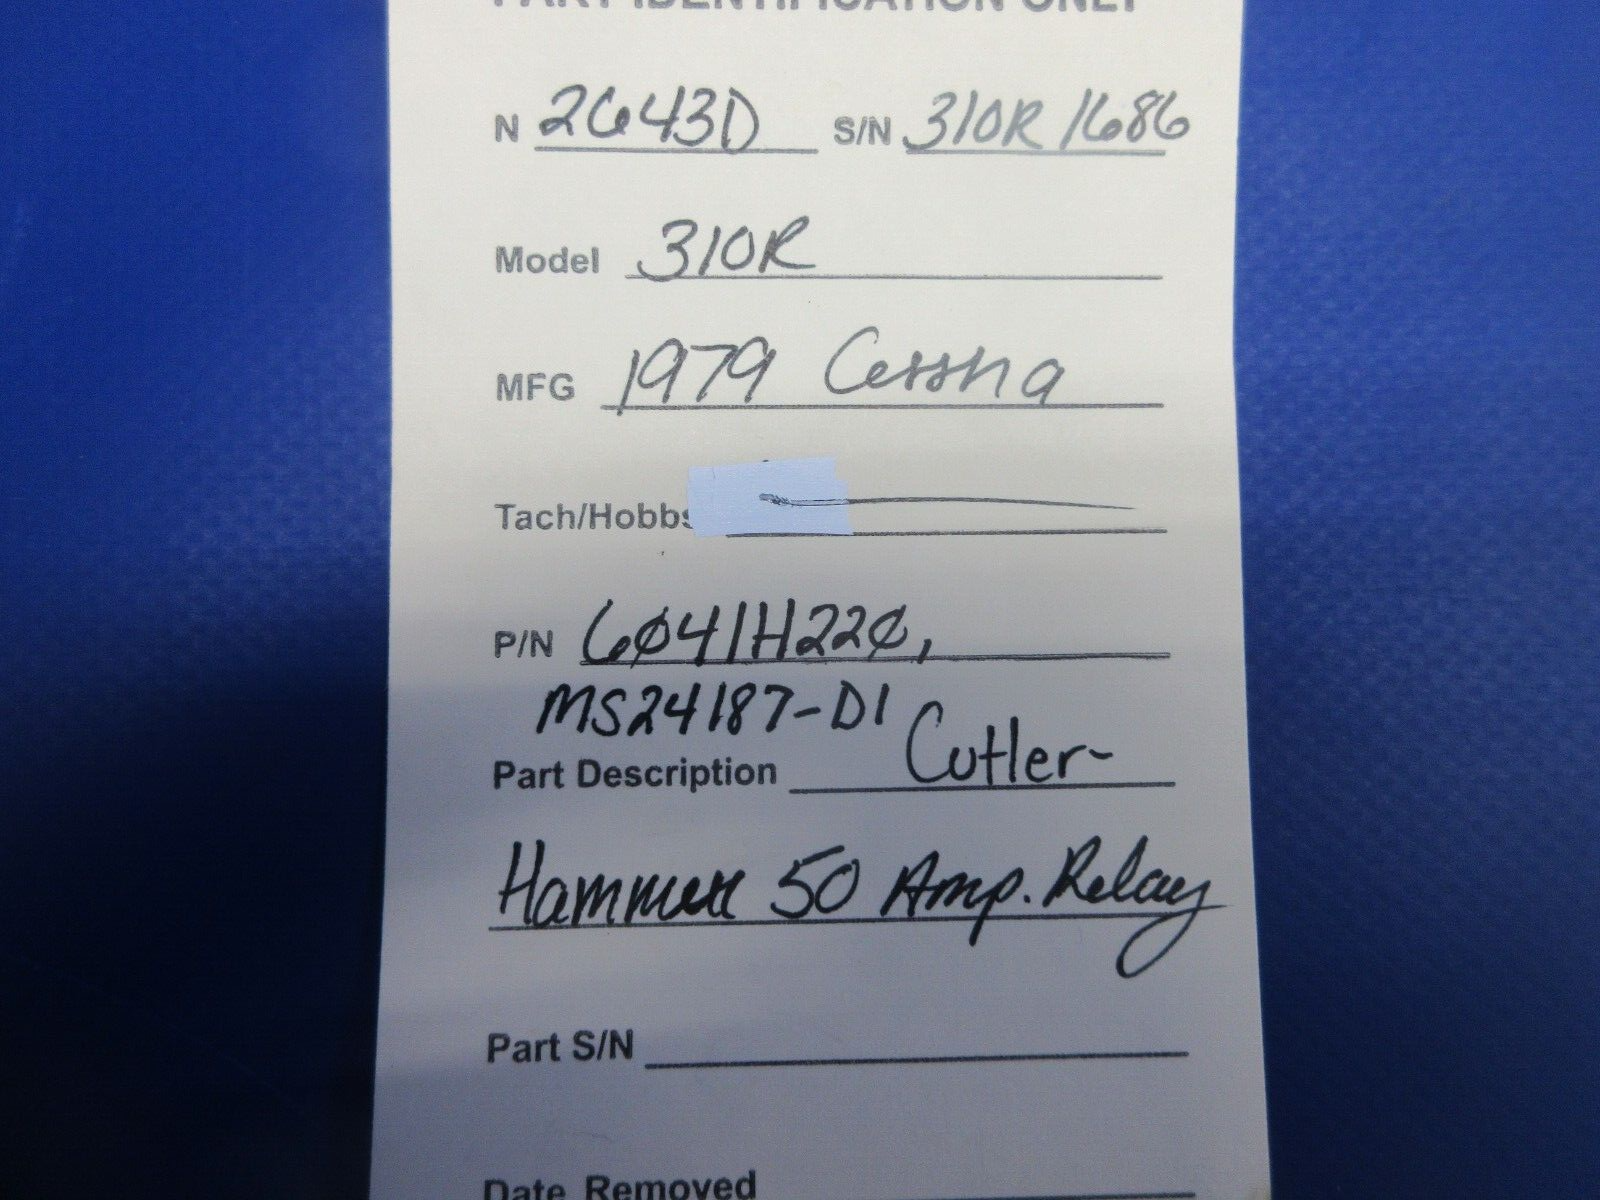 PART IDENTIFICATION ONLY
N 2643D S/N 310R 1686
Model 310R
MFG 1979 Cessna
Tach/Hobbs
P/N 6Ø41H22Ø,
MS24187-D1
Part Description Cutler-
Hammer 50 Amp. Relay
Part S/N
Date Removed